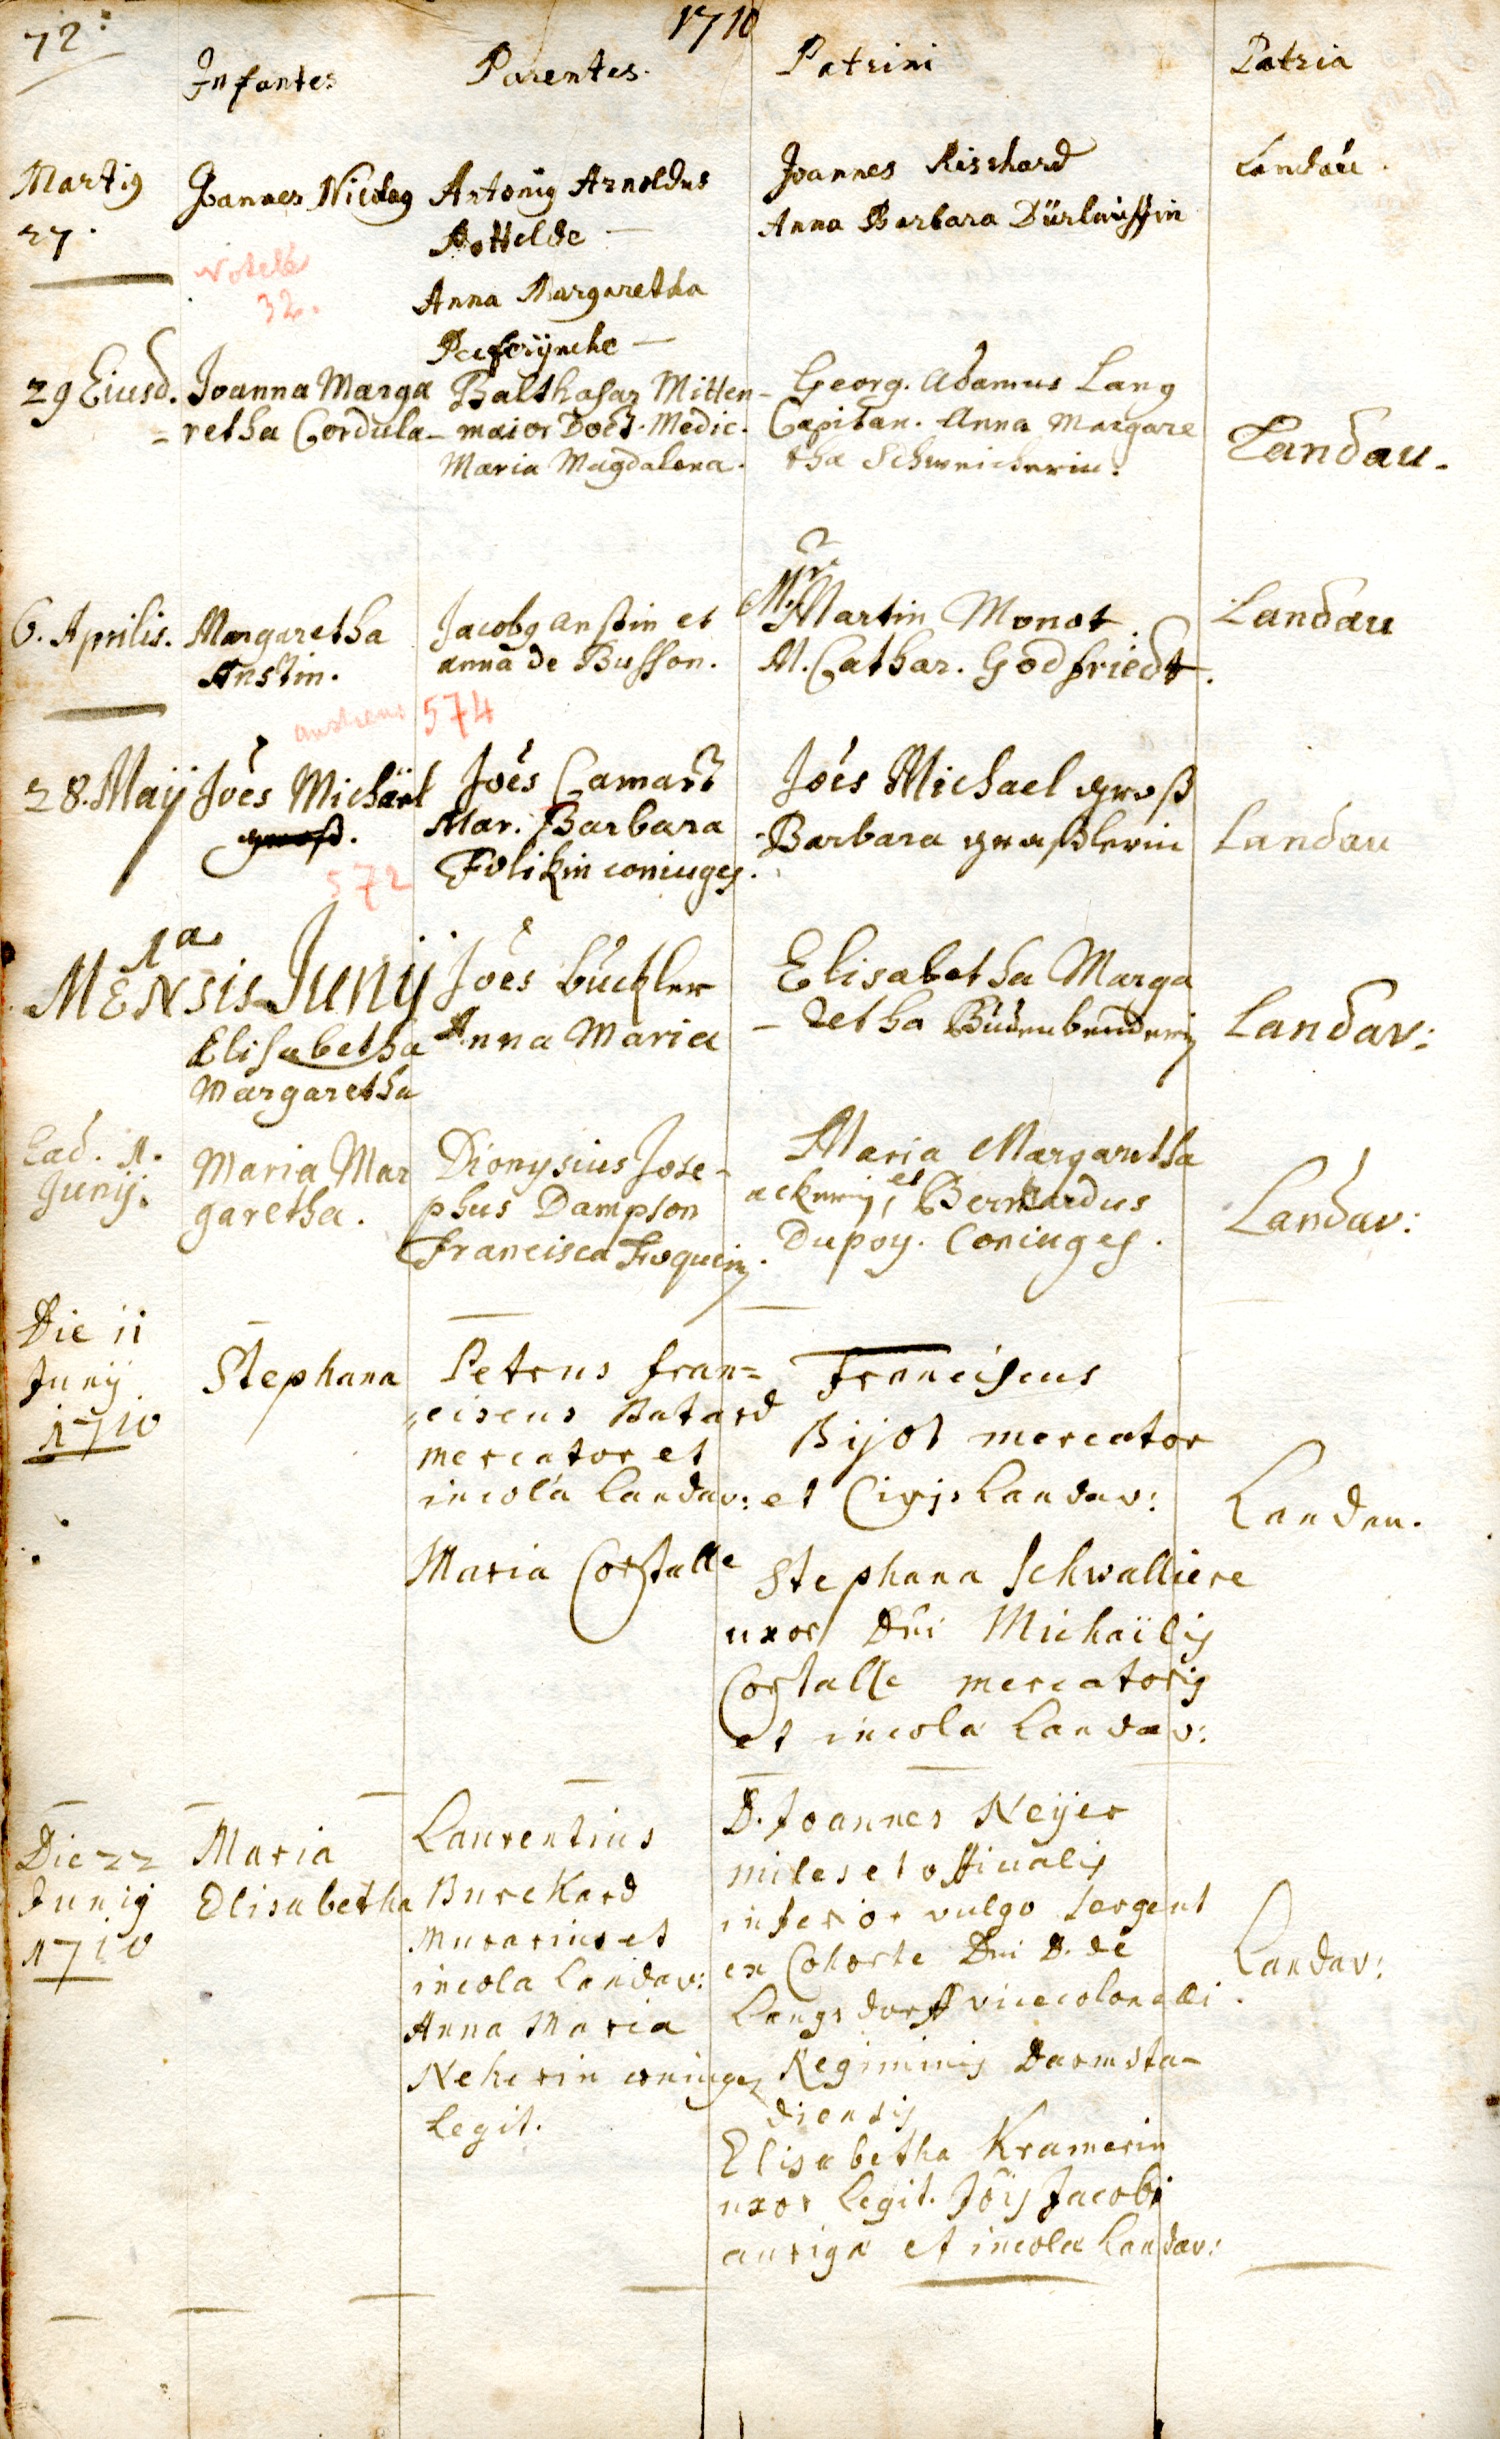 72
1710
Infantes
Parentes.
Patrini
Patria
Martig
27.
Joannes Nicolag
Antonig Arnoldus
Hottelde —
Anna Margaretha
Joannes Risshard
Anna Barbara
Landau.
32.
29 Eiusd.
Joanna Marga
= retha Cordula
Balthasar Mitten-
maior Doct. Medic.
Maria Magdalena.
Georg. Adamus Lang
Capitan. Anna Margare
tha Schweicherin.
Landau.
6. Aprilis.
Margaretha
Anstin.
Jacobg anstin et
anna de Busson.
Mr.
Martin Monot.
M. Cathar. Godfriedt.
Landau
574
28. Maij
Joes Michäel
groß.
Joes Camart
Mar. Barbara
Folikin coniuges.
Joes Michael groß
Barbara graßlerin
Landau
572
1a
MENsis Junij
Elisabetha
Margaretha
Joes bückler
Anna Maria
Elisabetha Marga
-retha
Landav:
Ead. 1.
Junij.
Maria Mar
garetha.
Dionysius Jose-
phus Dampson
Francisca
Maria Margaretha
et Bernardus
Dupoy. Coniuges.
Landav:
Die 11
Junij.
1710
Stephana
Petrus fran=
ciscus Batard
mercator et
incola Landav:
Maria Costalle
Franciscus
Bijot mercator
et Civis Landav:
Stephana Schwalliere
uxor Dni Michaëlis
Costalle mercatorig
et incola Landav:
Landau.
Die 22
Junig
1710
Maria
Elisabetha
Laurentius
Burckard
murarius et
incola Landav:
Anna Maria
Neherin coniuges
Legit.
D. Joannes Neijer
miles et officialis
inferior vulgo sergent
ex Cohorte Dni D. de
Langsdorff vicecolonelli
Regiminis Darmsta-
diensis
Elisabetha Kramerin
uxor legit. Jois Jacobi
auriga et incola Landav:
Landav: